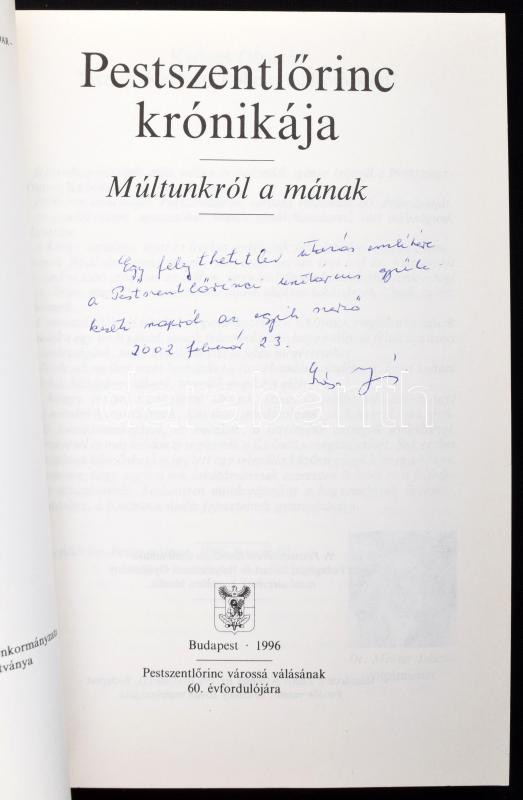 Pestszentlőrinc
krónikája
Múltunkról a mának
Egy felejthetetlen utazás emlékére
a Pestszentlőrinci unitárius gyüle-
kezeti napról az egyik szerző
2002 február 23.
darabanth
Budapest · 1996
Pestszentlőrinc várossá válásának
60. évfordulójára
nkormányzata
tványa